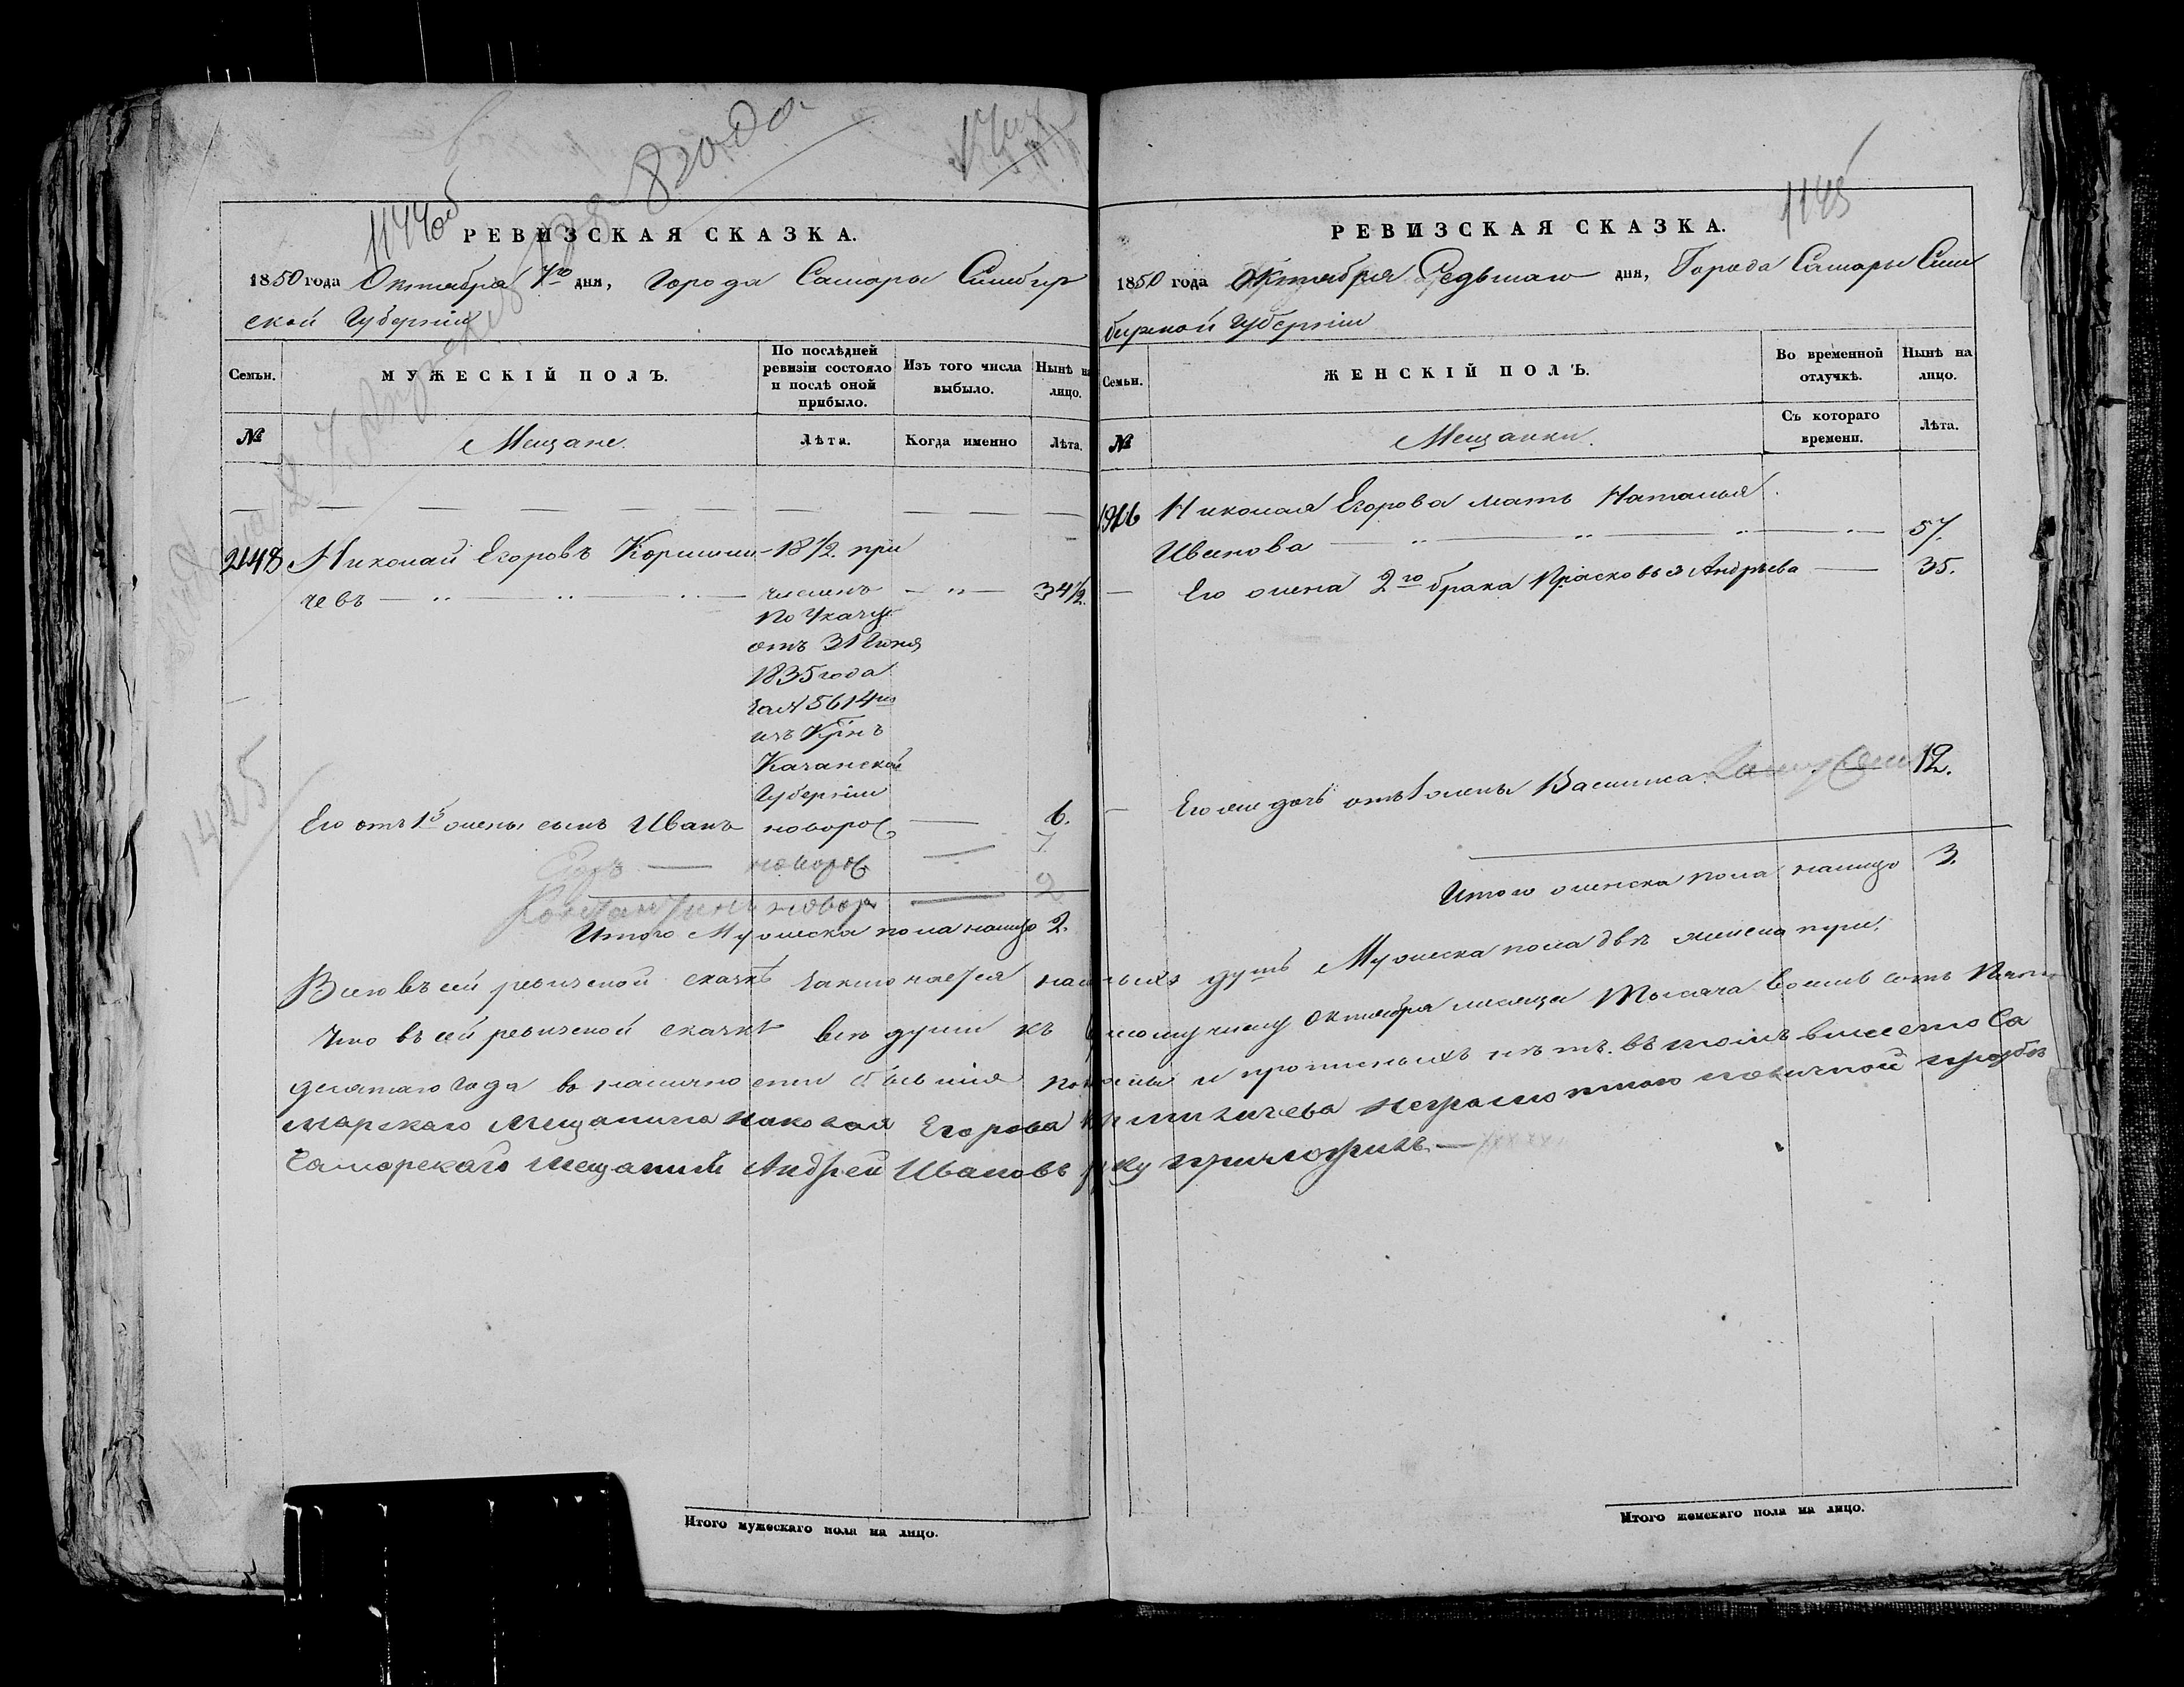 1144об
РЕВИЗСКАЯ СКАЗКА.
1850 года Октября 7го дня, Города Самары Симбир
ской Губерніи
Семьи.
МУЖЕСКІЙ ПОЛЪ.
По послѣдней
ревизіи состояло
и послѣ оной
прибыло.
Изъ того числа
выбыло.
Нынѣ на
лицо.
№
Мещане.
Лѣта.
Когда именно
Лѣта.
2148 Николай Егоровъ 18 1/2. при
чевъ численъ 34 1/2.
По Указу
отъ 31 Іюня
1835 года
за № 5614мъ
изъ
Казанской
Губерніи
Его отъ 1й жены сынъ Иванъ новорож 6.
Егоръ новорож 7.
Константинъ новор 2
Итого Мужеска пола налицо 2.
1425
1145
РЕВИЗСКАЯ СКАЗКА.
1850 года Октября Седьмаго дня, Города Самары Сим
бирской Губерніи
Семьи.
ЖЕНСКІЙ ПОЛЪ.
Во временной
отлучкѣ.
Нынѣ на
лицо.
№
Мещанки.
Съ котораго
времени.
Лѣта.
Николая Егорова мать Наталья
Иванова 57.
Его жена 2го брака Прасковья Андрѣева 35.
Его же дочь отъ 1 жены Васлиса 12.
Итого женска пола налицо 3.
Всего въ сей ревизской сказкѣ заключается наличныхъ душъ Мужеска пола двѣ женска три.
Что въ сей ревизской сказкѣ всѣ души къ числу Октября месяца Тысяча восемь сотъ Пять
десятаго года въ наличности бывшія показаны и прописныхъ нѣтъ. въ томъ вместо Са
марскаго мещанина Николая Егорова неграмотного личной прозбе
Самарскаго мещанин Андрей Ивановъ руку приложилъ
Итого мужескаго пола на лицо.
Итого женскаго пола на лицо.